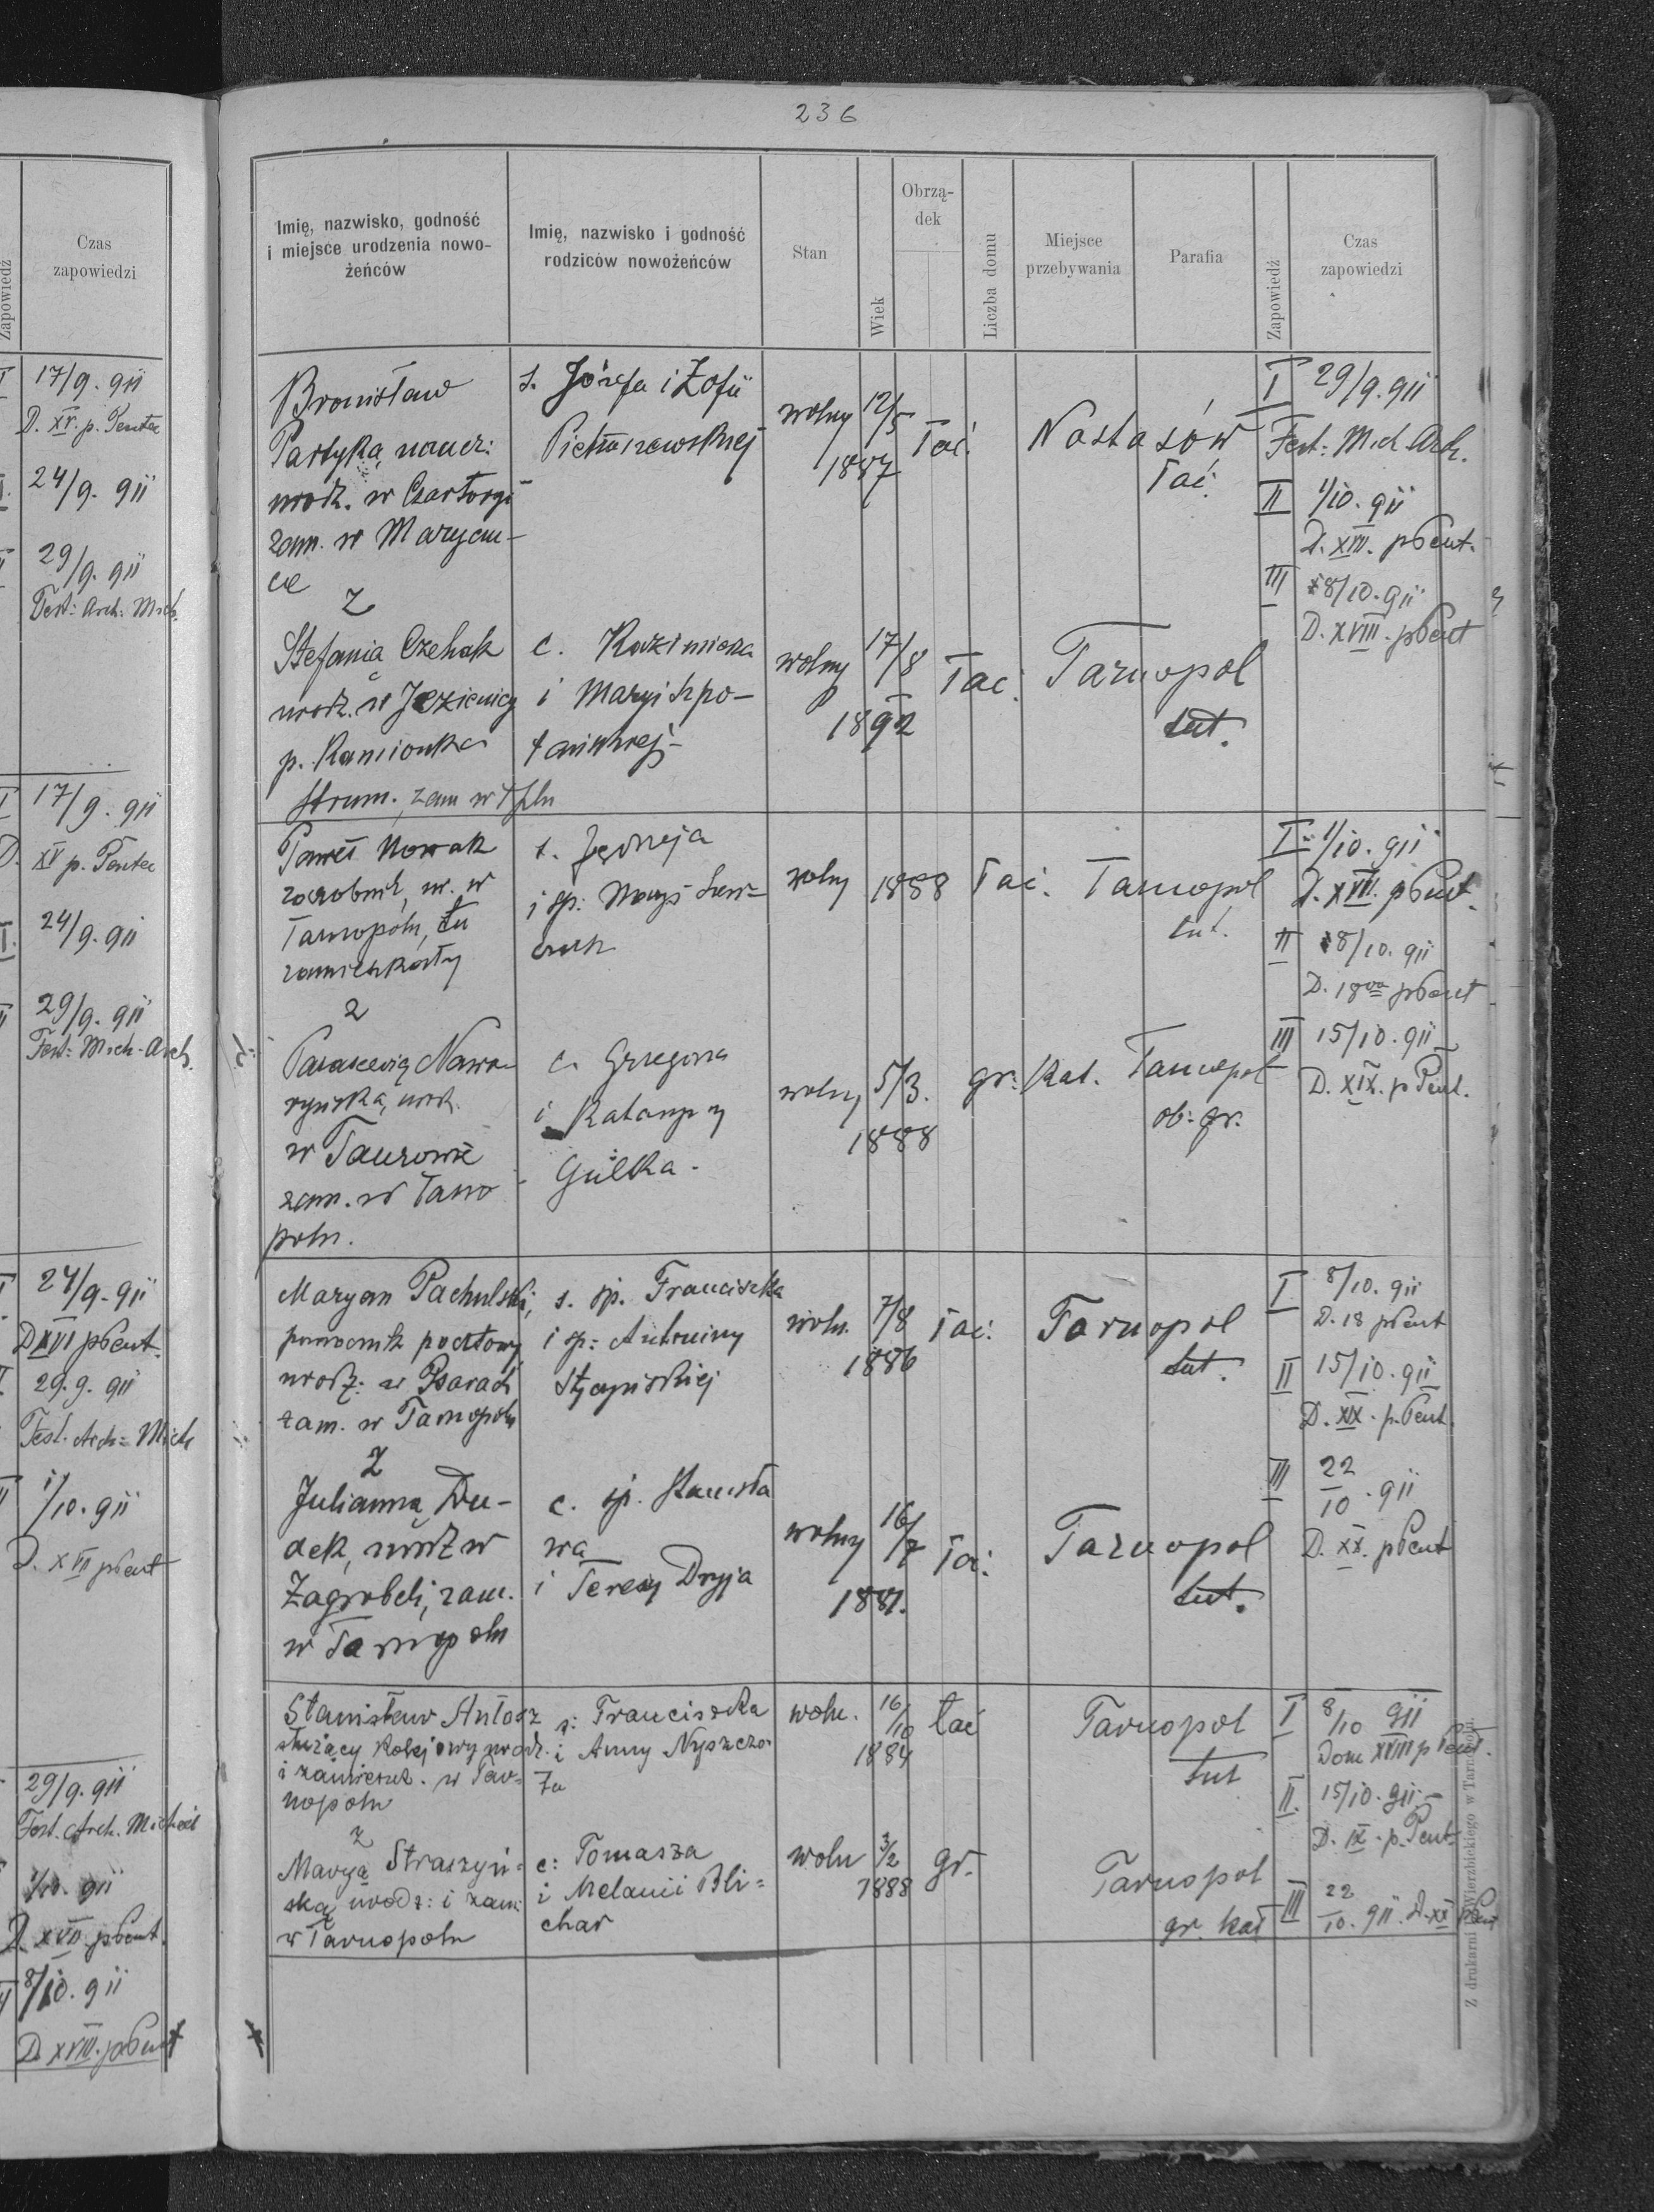 Zapowiedź
Czas
zapowiedzi
17/9. 911
D. XV. p. Pentec
24/9. 911
29/9. 911
Fest: Arch: Mich.
17/9. 911
D. XV p. Pentec
24/9. 911
29/9. 911
Fest: Mich. Arch.
24/9. 911
D XVI p Pent.
29. 9. 911
Fest. Arch: Mich
1/10. 911
D. XVII p Pent
29/9. 911
Fest. Arch. Michael
1/10. 911
D. XVII p Pent.
8/10. 911
D. XVIII. p Pent
236
Imię, nazwisko, godność
i miejsce urodzenia nowo-
żeńców
Imię, nazwisko i godność
rodziców nowożeńców
Stan
Wiek
Obrzą-
dek
Liczba domu
Miejsce
przebywania
Parafia
Zapowiedź
Czas
zapowiedzi
Bronisław
Partyka, naucz:
urodz. w Czartorył
zam. w Maryan-
ce
z
s. Józefa i Zofii
Pietraszewskiej
wolny
12/5
1887
łać.
Nastasów
łać.
I 29/9. 911
Fest: Mich. Arch.
II 1/10. 911
D. XVII. p Pent.
III 8/10. 911
D. XVIII. p Pent
Stefania Czehak
urodz. w Jezienicy
p. Kamionka
strum., zam w Tplu
c. Kazimierza
i Maryi Szpo-
tańskiej
wolny
17/8
1892
łać.
Tarnopol
tut.
Paweł Nowak
zarobnik, ur. w
Tarnopolu, tu
zamieszkały
z
s. Jędrzeja
i śp. Maryi
wolny
1888
łać.
Tarnopol
tut.
I 1/10. 911
D. XVII. p Pent.
II 8/10. 911
D. 18va p Pent
III 15/10. 911
D. XIX. p Pent.
Paraskewia Nawro-
ryńska, urodz.
w Taurowie
zam. w Tarno-
polu.
c. Grzegorza
i Katarzyny
Gulka.
wolny
5/3.
1888
gr. kat.
Tarnopol
ob: gr.
Maryan Pachulski,
pomocnik pocztowy
urodz: w Psarach
zam. w Tarnopolu
z
s. śp. Franciszka
i śp: Antoniny
Stępińskiej
woln.
7/8
1886
łać.
Tarnopol
tut.
I 8/10. 911
D. 18 p Pent
II 15/10. 911
D. XIX. p. Pent.
III 22/10. 911
D. XX. p Pent
Julianna Du-
dek, urodz w
Zagrobeli, zam.
w Tarnopolu
c. śp. Stanisła
wa
i Teresy Dryja
wolny
16/7
1881.
łać.
Tarnopol
tut.
Stanisław Antosz
służący kolejowy urodz.
i zamieszk. w Tar-
nopolu
z
s: Franciszka
i Anny Nyszczo-
ta
woln.
16/10
1884
łać
Tarnopol
tut
I 8/10 911
Dom XVIII p Pent.
II. 15/10. 911
D. IX. p. Pent
III 22/10. 911. D. XX p Pent
Marya Straszyń-
ska urodz: i zam:
w Tarnopolu
c: Tomasza
i Melanii Bli-
char
woln
3/2
1888
gr.
Tarnopol
gr. kat
Z drukarni Wierzbickiego w Tarnopolu.